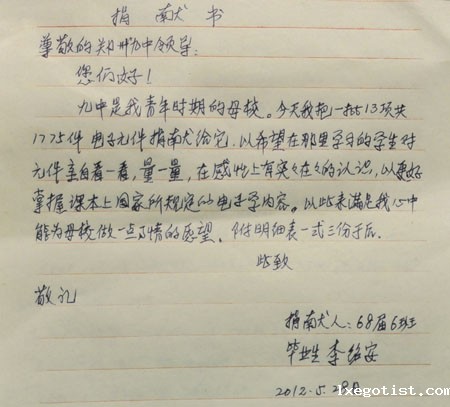 捐献书
尊敬的郑州九中领导:
您们好!
九中是我青年时期的母校。今天我把一批13项共
1775件电子元件捐献给它,以希望在那里学习的学生对
元件亲自看一看,量一量,在感性上有实实在在的认识,以更好
掌握课本上国家所规定的电子学内容。以此来满足我心中
能为母校做一点事情的愿望。附明细表一式三份于后.
此致
敬礼
捐献人:68届6班
毕业生 李铭安
2012.5.29日
lxegotist.com